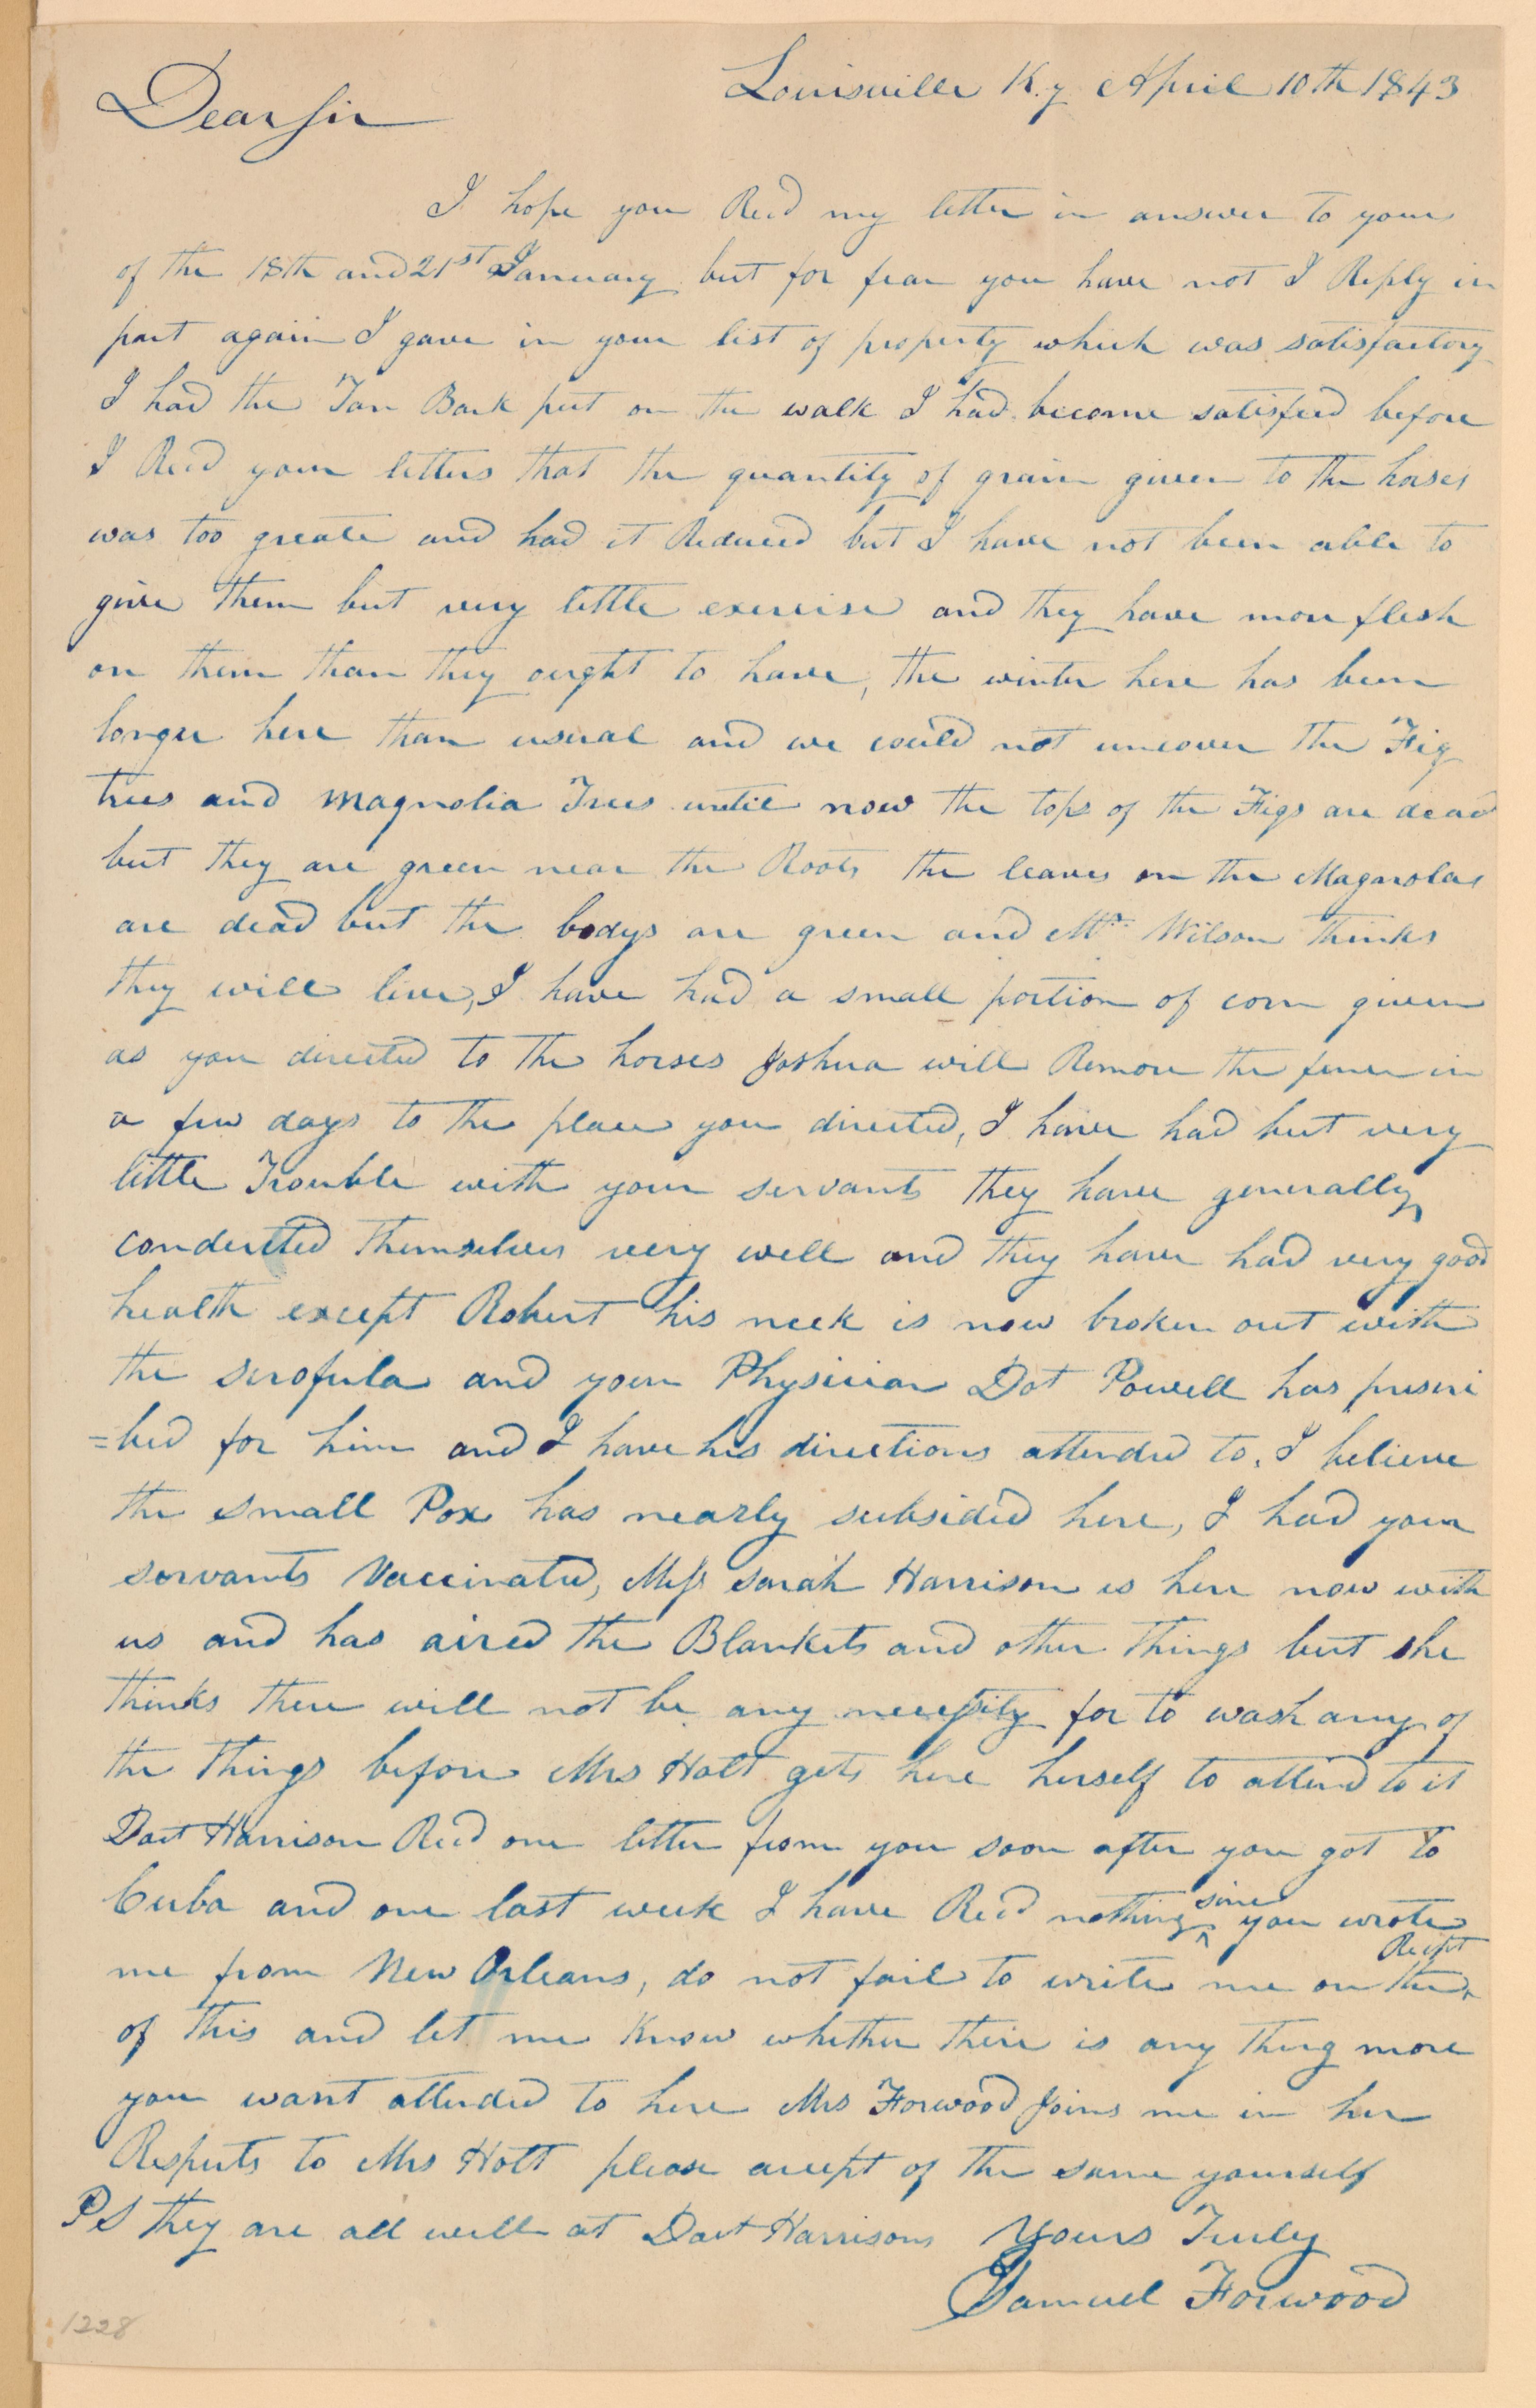 Louisville K.y April 10th 1843
Dear sir
I hope you Recd my letter in answer to yours
of the 18th and 21st January but for fear you have not I Reply in
part again I gave in your list of property which was satisfactory
I had the Tan Bark put on the walk I had become satisfied before
I Recd your letters that the quantity of grain given to the horses
was too greate and had it Reduced but I have not been able to
give them but very little exercise and they have more flesh
on them than they ought to have, the winter here has been
longer here than usual and we could not uncover the Fig
trees and Magnolia Trees until now the tops of the Figs are dead
but they are green near the Roots the leaves on the Magnolas
are dead but the bodys are green and Mr. Wilson thinks
they will live, I have had a small portion of corn given
as you directed to the horses Joshua will Remove the fence in
a few days to the place you directed, I have had but very
little Trouble with your servants they have generally
conducted themselves very well and they have had very good
health except Robert his neck is now broken out with
the scrofula and your Physician Dot Powell has prescri
=bed for him and I have his directions attended to, I believe
the small Pox has nearly subsided here, I had your
servants Vaccinated, Miss Sarah Harrison is here now with
us and has aired the Blankets and other things but she
thinks there will not be any necessity for to wash any of
the things before Mrs Holt gets here herself to attend to it
Doct Harrison Recd one letter from you soon after you got to
Cuba and one last week I have Recd nothing since you wrote
me from New Orleans, do not fail to write me on the Recipt
of this and let me Know whether there is any thing more
you want attended to here Mrs Forwood Joins me in her
Respects to Mrs Holt please accept of the same yourself
PS they are all well at Doct Harrisons Yours Truly
Samuel Forwood
1228